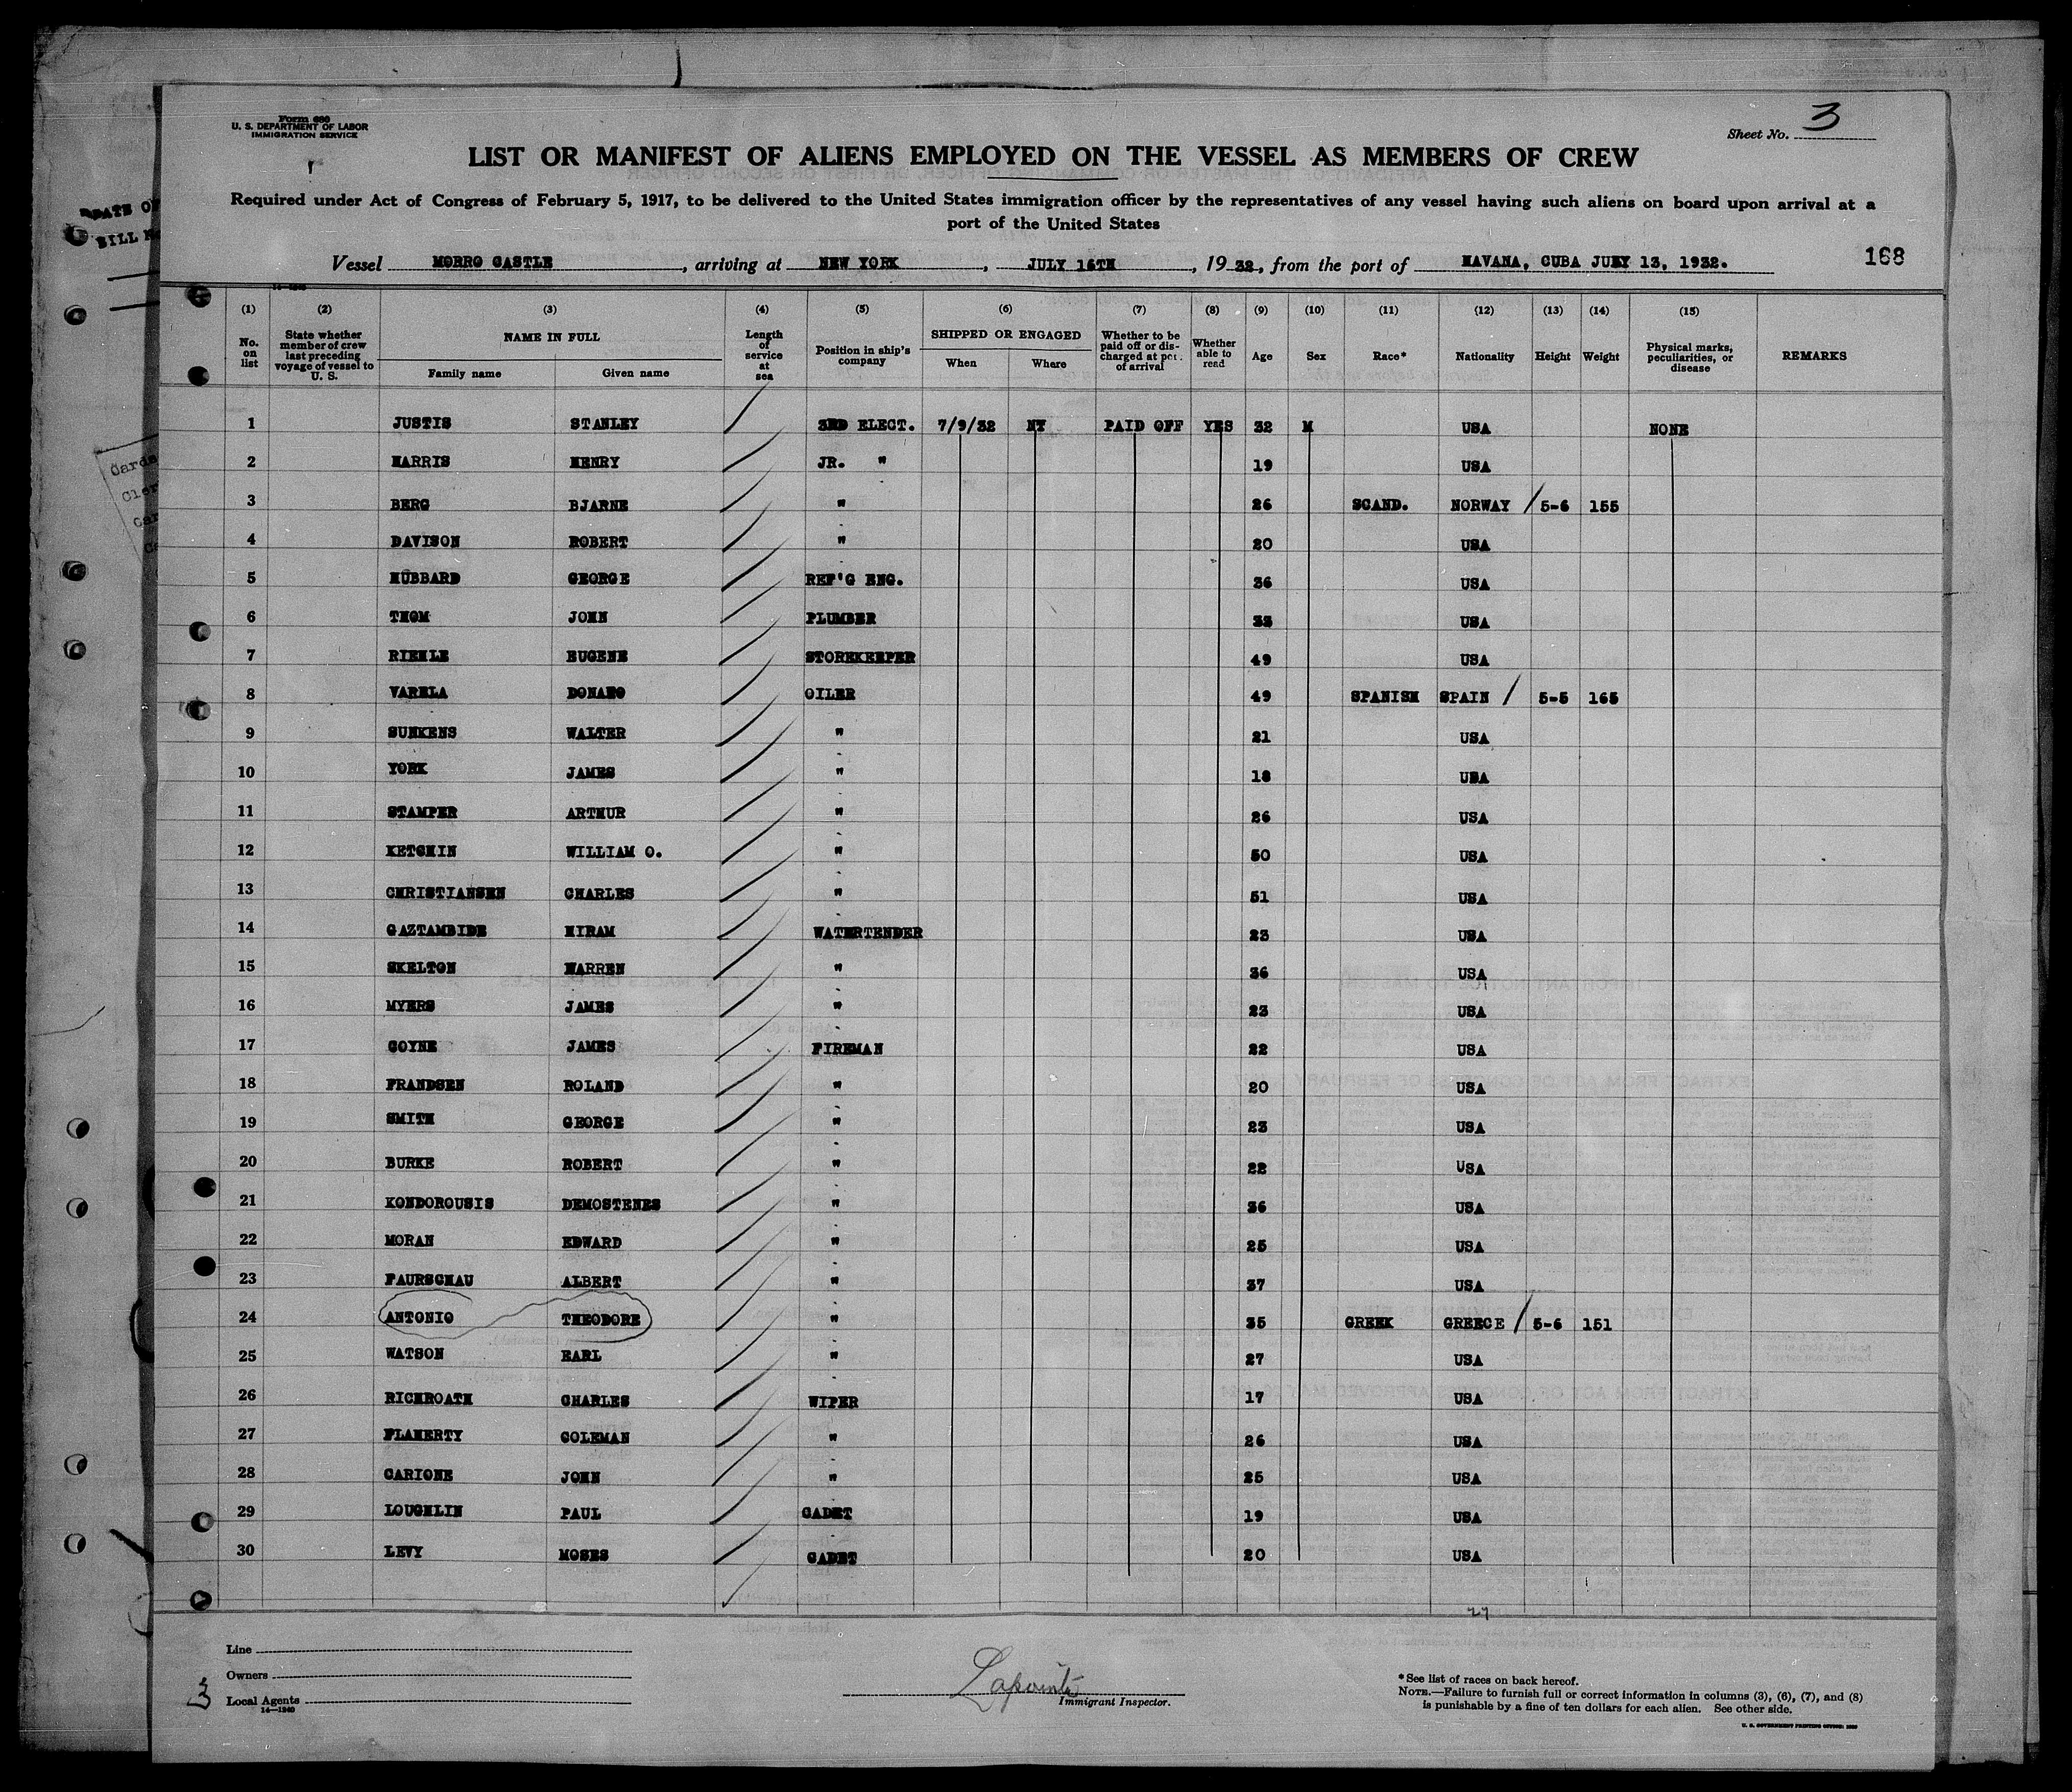 Form 680
U. S. DEPARTMENT OF LABOR
IMMIGRATION SERVICE
Sheet No. 3
LIST OR MANIFEST OF ALIENS EMPLOYED ON THE VESSEL AS MEMBERS OF CREW
Required under Act of Congress of February 5, 1917, to be delivered to the United States immigration officer by the representatives of any vessel having such aliens on board upon arrival at a
port of the United States
Vessel MORRO CASTLE, arriving at NEW YORK, JULY 16TH, 1932, from the port of HAVANA, CUBA JULY 13, 1932.
168
DATE OF
BILL
(1) (2) (3) (4) (5) (6) (7) (8) (9) (10) (11) (12) (13) (14) (15)
No. on list
State whether member of crew last preceding voyage of vessel to U. S.
NAME IN FULL
Family name
Given name
Length of service at sea
Position in ship's company
SHIPPED OR ENGAGED
When
Where
Whether to be paid off or discharged at port of arrival
Whether able to read
Age
Sex
Race*
Nationality
Height
Weight
Physical marks, peculiarities, or disease
REMARKS
1 JUSTIS STANLEY 3RD ELECT. 7/9/32 NY PAID OFF YES 32 M USA NONE
2 HARRIS HENRY JR. " 19 USA
3 BERG BJARNE " 26 SCAND. NORWAY / 5-6 155
4 DAVISON ROBERT " 20 USA
5 HUBBARD GEORGE REF'G ENG. 36 USA
6 THOM JOHN PLUMBER 33 USA
7 RIEHLE EUGENE STOREKEEPER 49 USA
8 VARELA OILER 49 SPANISH SPAIN / 5-5 165
9 SUNKENS WALTER " 21 USA
10 YORK JAMES " 18 USA
11 STAMPER ARTHUR " 26 USA
12 KETCHIN WILLIAM O. " 50 USA
13 CHRISTIANSEN CHARLES " 51 USA
14 GAZTAMBIDE HIRAM WATERTENDER 23 USA
15 SKELTON WARREN " 36 USA
16 MYERS JAMES " 23 USA
17 COYNE JAMES FIREMAN 22 USA
18 FRANDSEN ROLAND " 20 USA
19 SMITH GEORGE " 23 USA
20 BURKE ROBERT " 22 USA
21 KONDOROUSIS DEMOSTENES " 36 USA
22 MORAN EDWARD " 25 USA
23 FAURSCHAU ALBERT " 37 USA
24 ANTONIO THEODORE " 35 GREEK GREECE / 5-6 151
25 WATSON EARL " 27 USA
26 RICHROATH CHARLES WIPER 17 USA
27 FLAHERTY COLEMAN " 26 USA
28 CARIONE JOHN " 25 USA
29 LOUGHLIN PAUL CADET 19 USA
30 LEVY MOSES CADET 20 USA
27
Line
Owners
Local Agents
14—1240
3
Lapointe
Immigrant Inspector.
*See list of races on back hereof.
NOTE.—Failure to furnish full or correct information in columns (3), (6), (7), and (8)
is punishable by a fine of ten dollars for each alien. See other side.